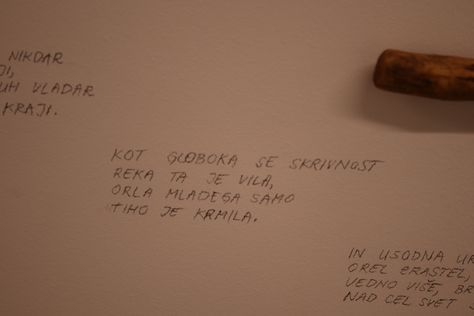 NIKDAR
JI,
UH VLADAR
KRAJI.
KOT GLOBOKA SE SKRIVNOST
REKA TA JE VILA,
ORLA MLADEGA SAMO
TIHO JE KRMILA.
IN USODNA UR
OREL ERASTEL,
VEDNO VIŠE, BR
NAD CEL SVET